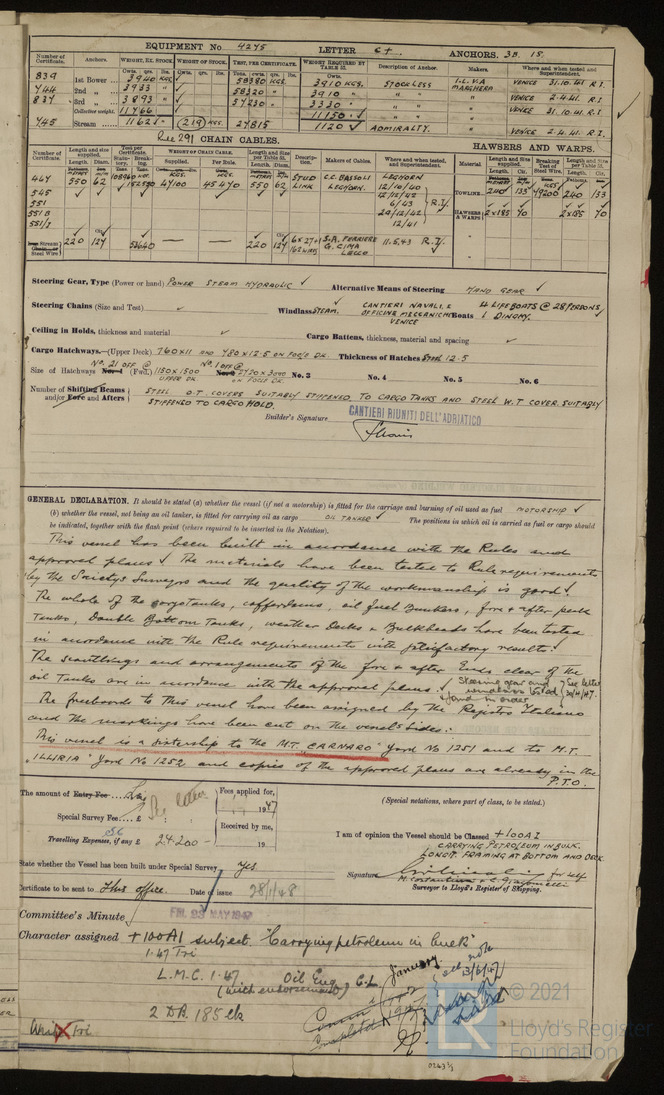 EQUIPMENT No. 4245 LETTER C† ANCHORS. 3B. 15.
Number of Certificate. Anchors. WEIGHT, EX. STOCK. WEIGHT OF STOCK. TEST, PER CERTIFICATE. WEIGHT REQUIRED BY TABLE 53. Description of Anchor. Makers. Where and when tested and Superintendent.
839 1st Bower 3940 KGS. 58380 KGS. 3910 KGS. STOCKLESS I.L.V.A MARGHERA VENICE 31.10.41 R.I.
744 2nd " 3933 " 58320 " 3910 " " " VENICE 2.4.41. R.I.
837 3rd " 3893 " 57230 " 3330 " " " VENICE 31.10.41 R.I.
Collective weight. 11766 11150
745 Stream 1162 219 KGS. 27815 1120 ADMIRALTY. " VENICE 2.4.41. R.I.
Rule 291 CHAIN CABLES. HAWSERS AND WARPS.
Number of Certificate. Length and size supplied. Test per Certificate. WEIGHT OF CHAIN CABLE. Length and Size per Table 53. Description. Makers of Cables. Where and when tested, and Superintendent. Material Length and Size supplied. Breaking Test of Steel Wire. Length and Size per Table 53.
Length. Diam. Statutory. Breaking. Supplied. Per Rule. Length. Diam. Length. Cir. Length. Cir.
467 550 62 47100 45470 550 62 STUD LINK C.C. BASSOLI LEGHORN. LEGHORN 12/10/40 TOWLINE 240 135 49200 240 133
545 12/12/42
551 6/43 R.I. HAWSERS & WARPS 2x185 70 2x185 70
551B 29/12/42
551/I 12/41
Stream Chain or Steel Wire 220 127 — — 220 127 6x27+1 S.A. FERRIERE G. CIMA LECCO 11.5.43 R.I.
Steering Gear, Type (Power or hand) POWER STEAM HYDRAULIC Alternative Means of Steering HAND GEAR
Steering Chains (Size and Test) Windlass STEAM. CANTIERI NAVALI & OFFICINE MECCANICHE VENICE Boats 4 LIFEBOATS @ 28 PERSONS 1 DINGHY.
Ceiling in Holds, thickness and material Cargo Battens, thickness, material and spacing
Cargo Hatchways.—(Upper Deck) 760x11 AND 780x12.5 ON FOC'LE DK. Thickness of Hatches STEEL 12.5
Size of Hatchways No. 1 No. 21 OFF @ (Fwd.) 1150x1500 UPPER DK. No. 2 No. 1 OFF @ 2750x3000 ON FOCLE DK. No. 3 No. 4 No. 5 No. 6
Number of Shifting Beams and/or Fore and Afters STEEL O.T. COVERS SUITABLY STIFFENED TO CARGO TANKS AND STEEL W.T COVER SUITABLY
STIFFENED TO CARGO HOLD.
Builder's Signature CANTIERI RIUNITI DELL'ADRIATICO
GENERAL DECLARATION. It should be stated (a) whether the vessel (if not a motorship) is fitted for the carriage and burning of oil used as fuel MOTORSHIP
(b) whether the vessel, not being an oil tanker, is fitted for carrying oil as cargo OIL TANKER The positions in which oil is carried as fuel or cargo should
be indicated, together with the flash point (where required to be inserted in the Notation).
This vessel has been built in accordance with the Rules and
approved plans. The materials have been tested to Rule requirements
by the Society's Surveyors and the quality of the workmanship is good.
The whole of the cargo Tanks, cofferdams, oil fuel Bunkers, fore & after peak
Tanks, Double Bottom Tanks, weather Decks & Bulkheads have been tested
in accordance with the Rule requirements with satisfactory results.
The scantlings and arrangements of the fore & after Ends clear of the
oil Tanks are in accordance with the approved plans. Steering gear and windlass tested & found in order See letter 30/4/47.
The freeboards to this vessel have been assigned by the Registro Italiano
and the markings have been cut on the vessel's sides.
This vessel is a sistership to the M.T. "CARNARO" Yard No 1251 and to M.T.
"ILLIRIA" Yard No 1252 and copies of the approved plans are already in the
P.T.O.
The amount of Entry Fee Fees applied for, 1947 (Special notations, where part of class, to be stated.)
Special Survey Fee £ See letter Received by me, 19
Travelling Expenses, if any £ 24200 I am of opinion the Vessel should be Classed +100A1
CARRYING PETROLEUM IN BULK.
LONGIT. FRAMING AT BOTTOM AND DECK
State whether the Vessel has been built under Special Survey Yes
Signature for self
Surveyor to Lloyd's Register of Shipping.
Certificate to be sent to This office. Date of issue 28/1/48
Committee's Minute FRI. 23 MAY 1947
Character assigned +100A1 subject "Carrying petroleum in bulk"
1.47 Tri
L.M.C. 1.47 Oil Eng C.L.
(with endorsement)
2 D.B. 185 lb
January.
see note 13/6/47
Completed 1947
© 2021
Lloyd's Register
Foundation
0243 3/3